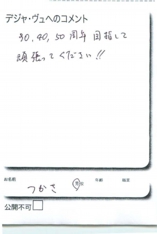 デジャ・ヴュへのコメント
30、40、50周年目指して
頑張ってください!!
お名前
つかさ
男
年齢
職業
公開不可